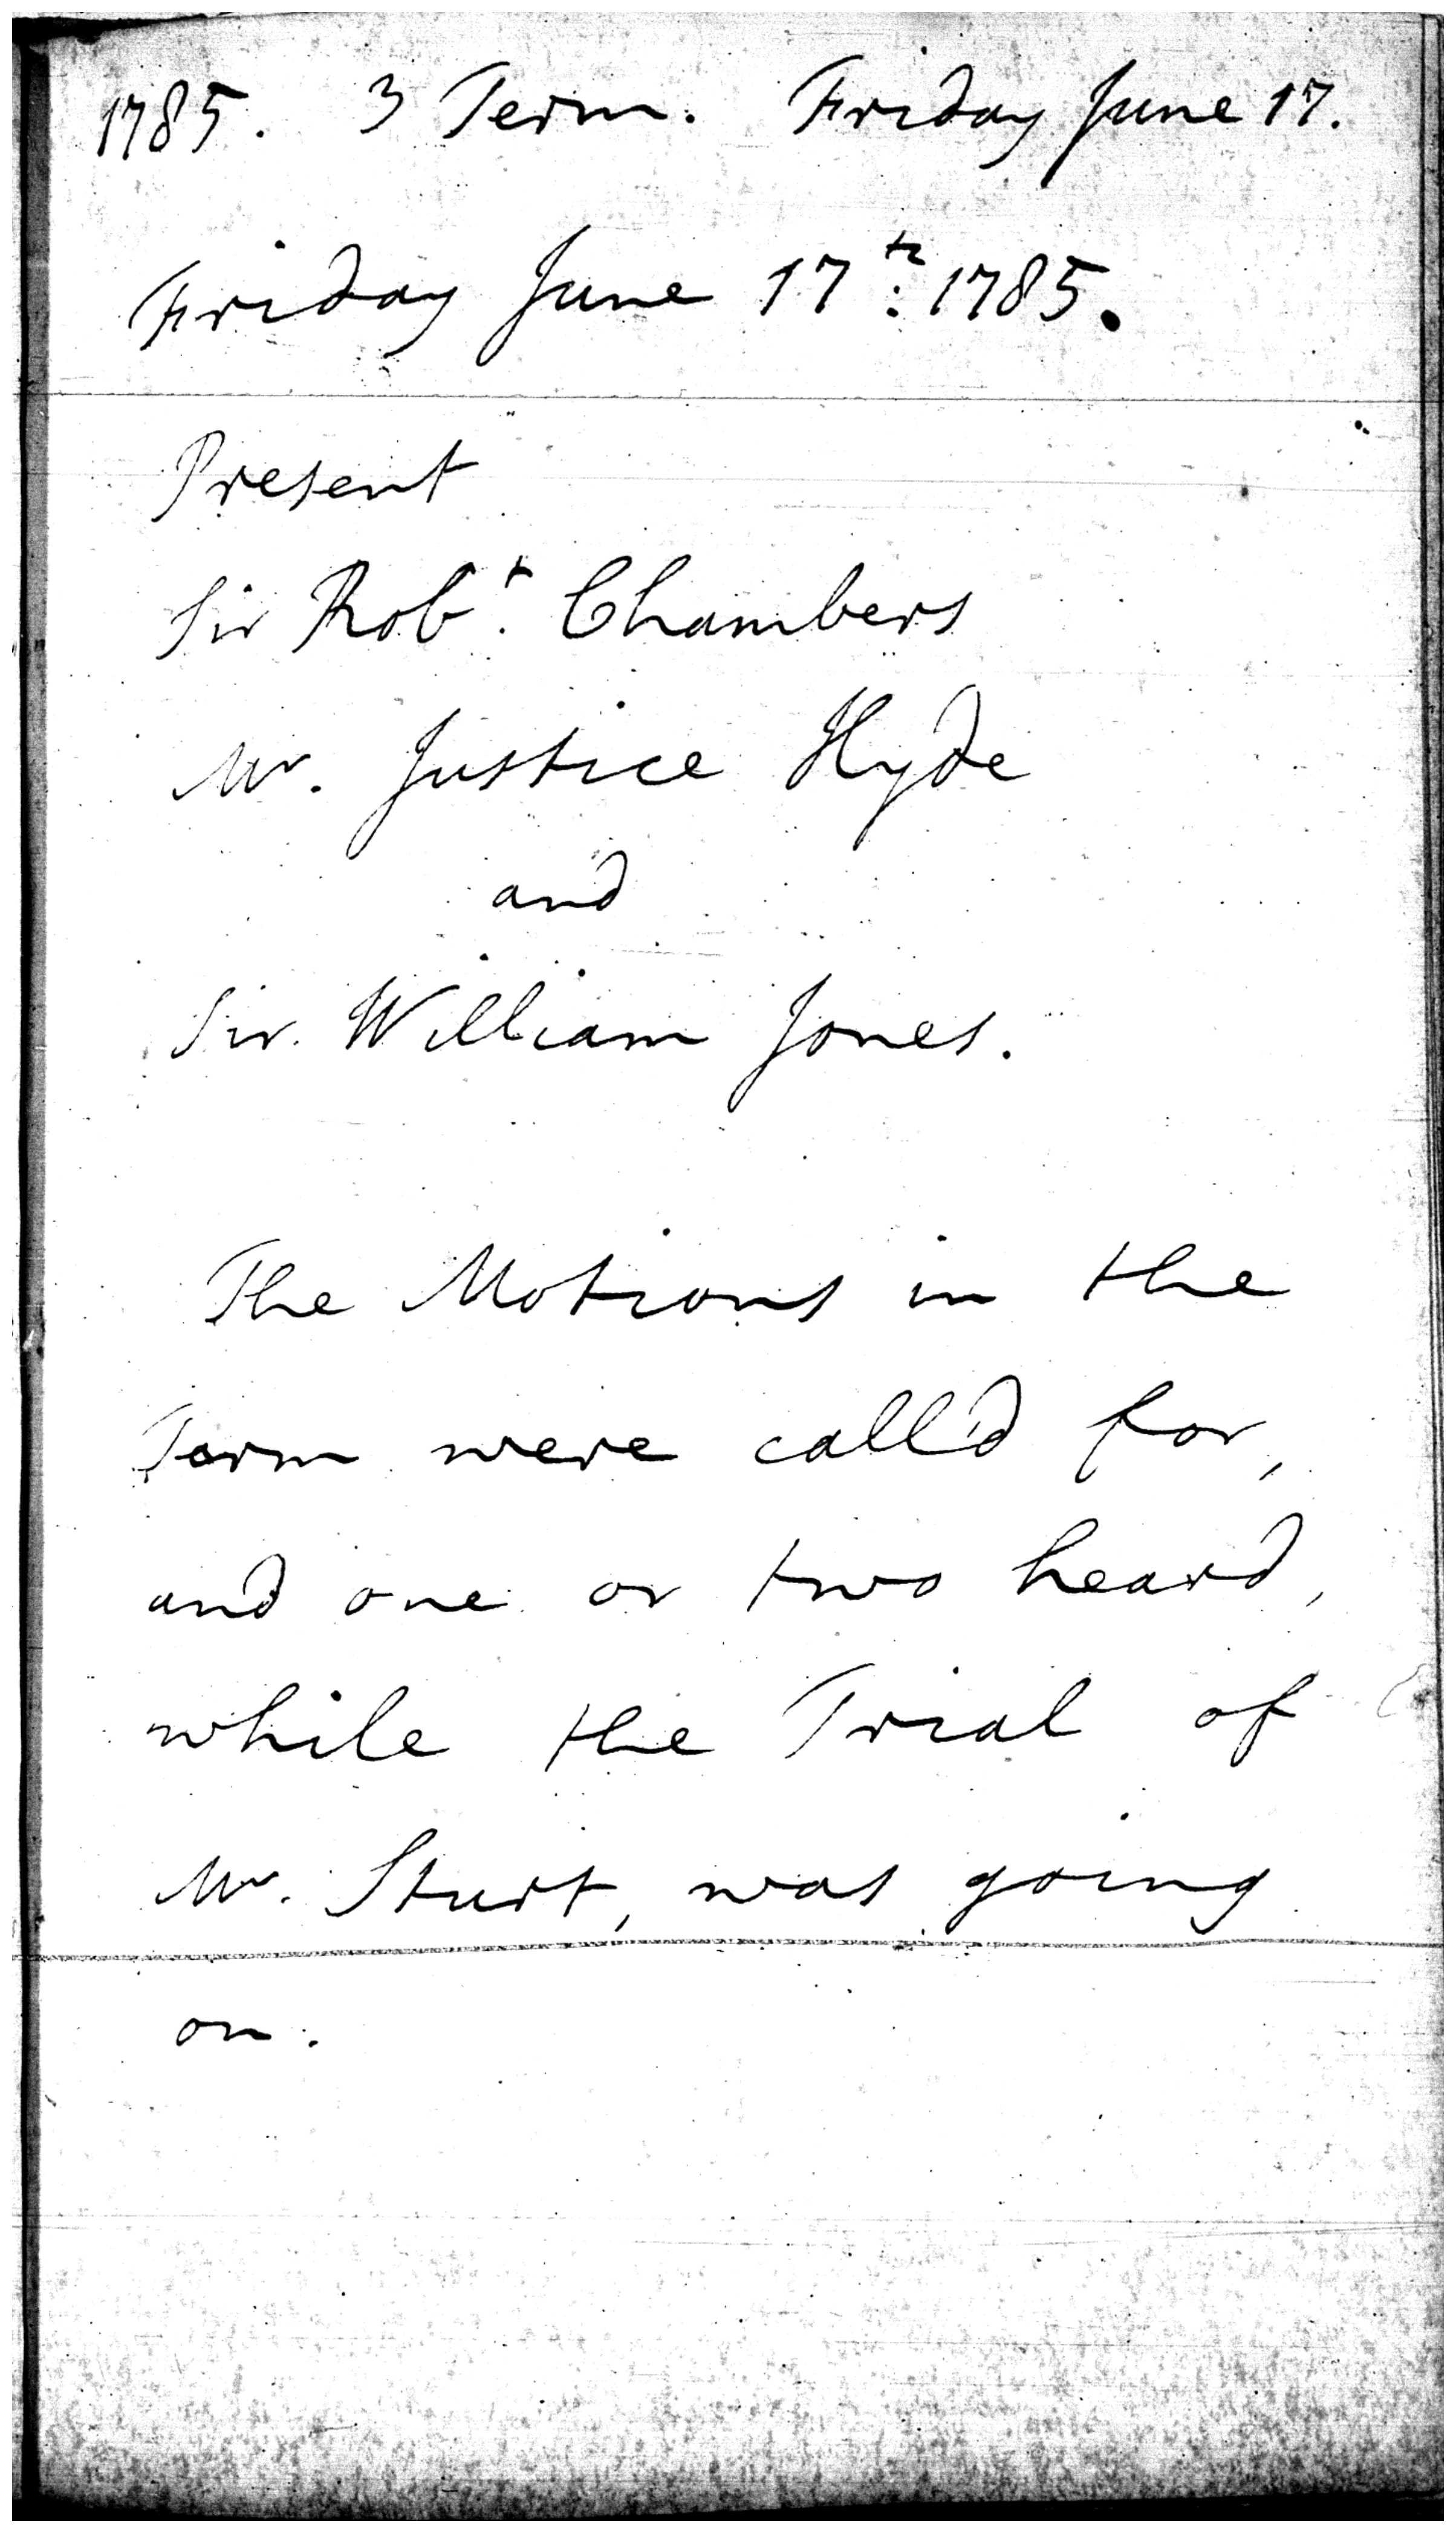 1785. 3 Term. Friday June 17.
Friday June 17th. 1785.
Present
Sir Robt. Chambers
Mr. Justice Hyde
and
Sir William Jones.
The Motions in the
Term were call'd for,
and one or two heard,
while the Trial of
Mr. Sturt, was going
on.